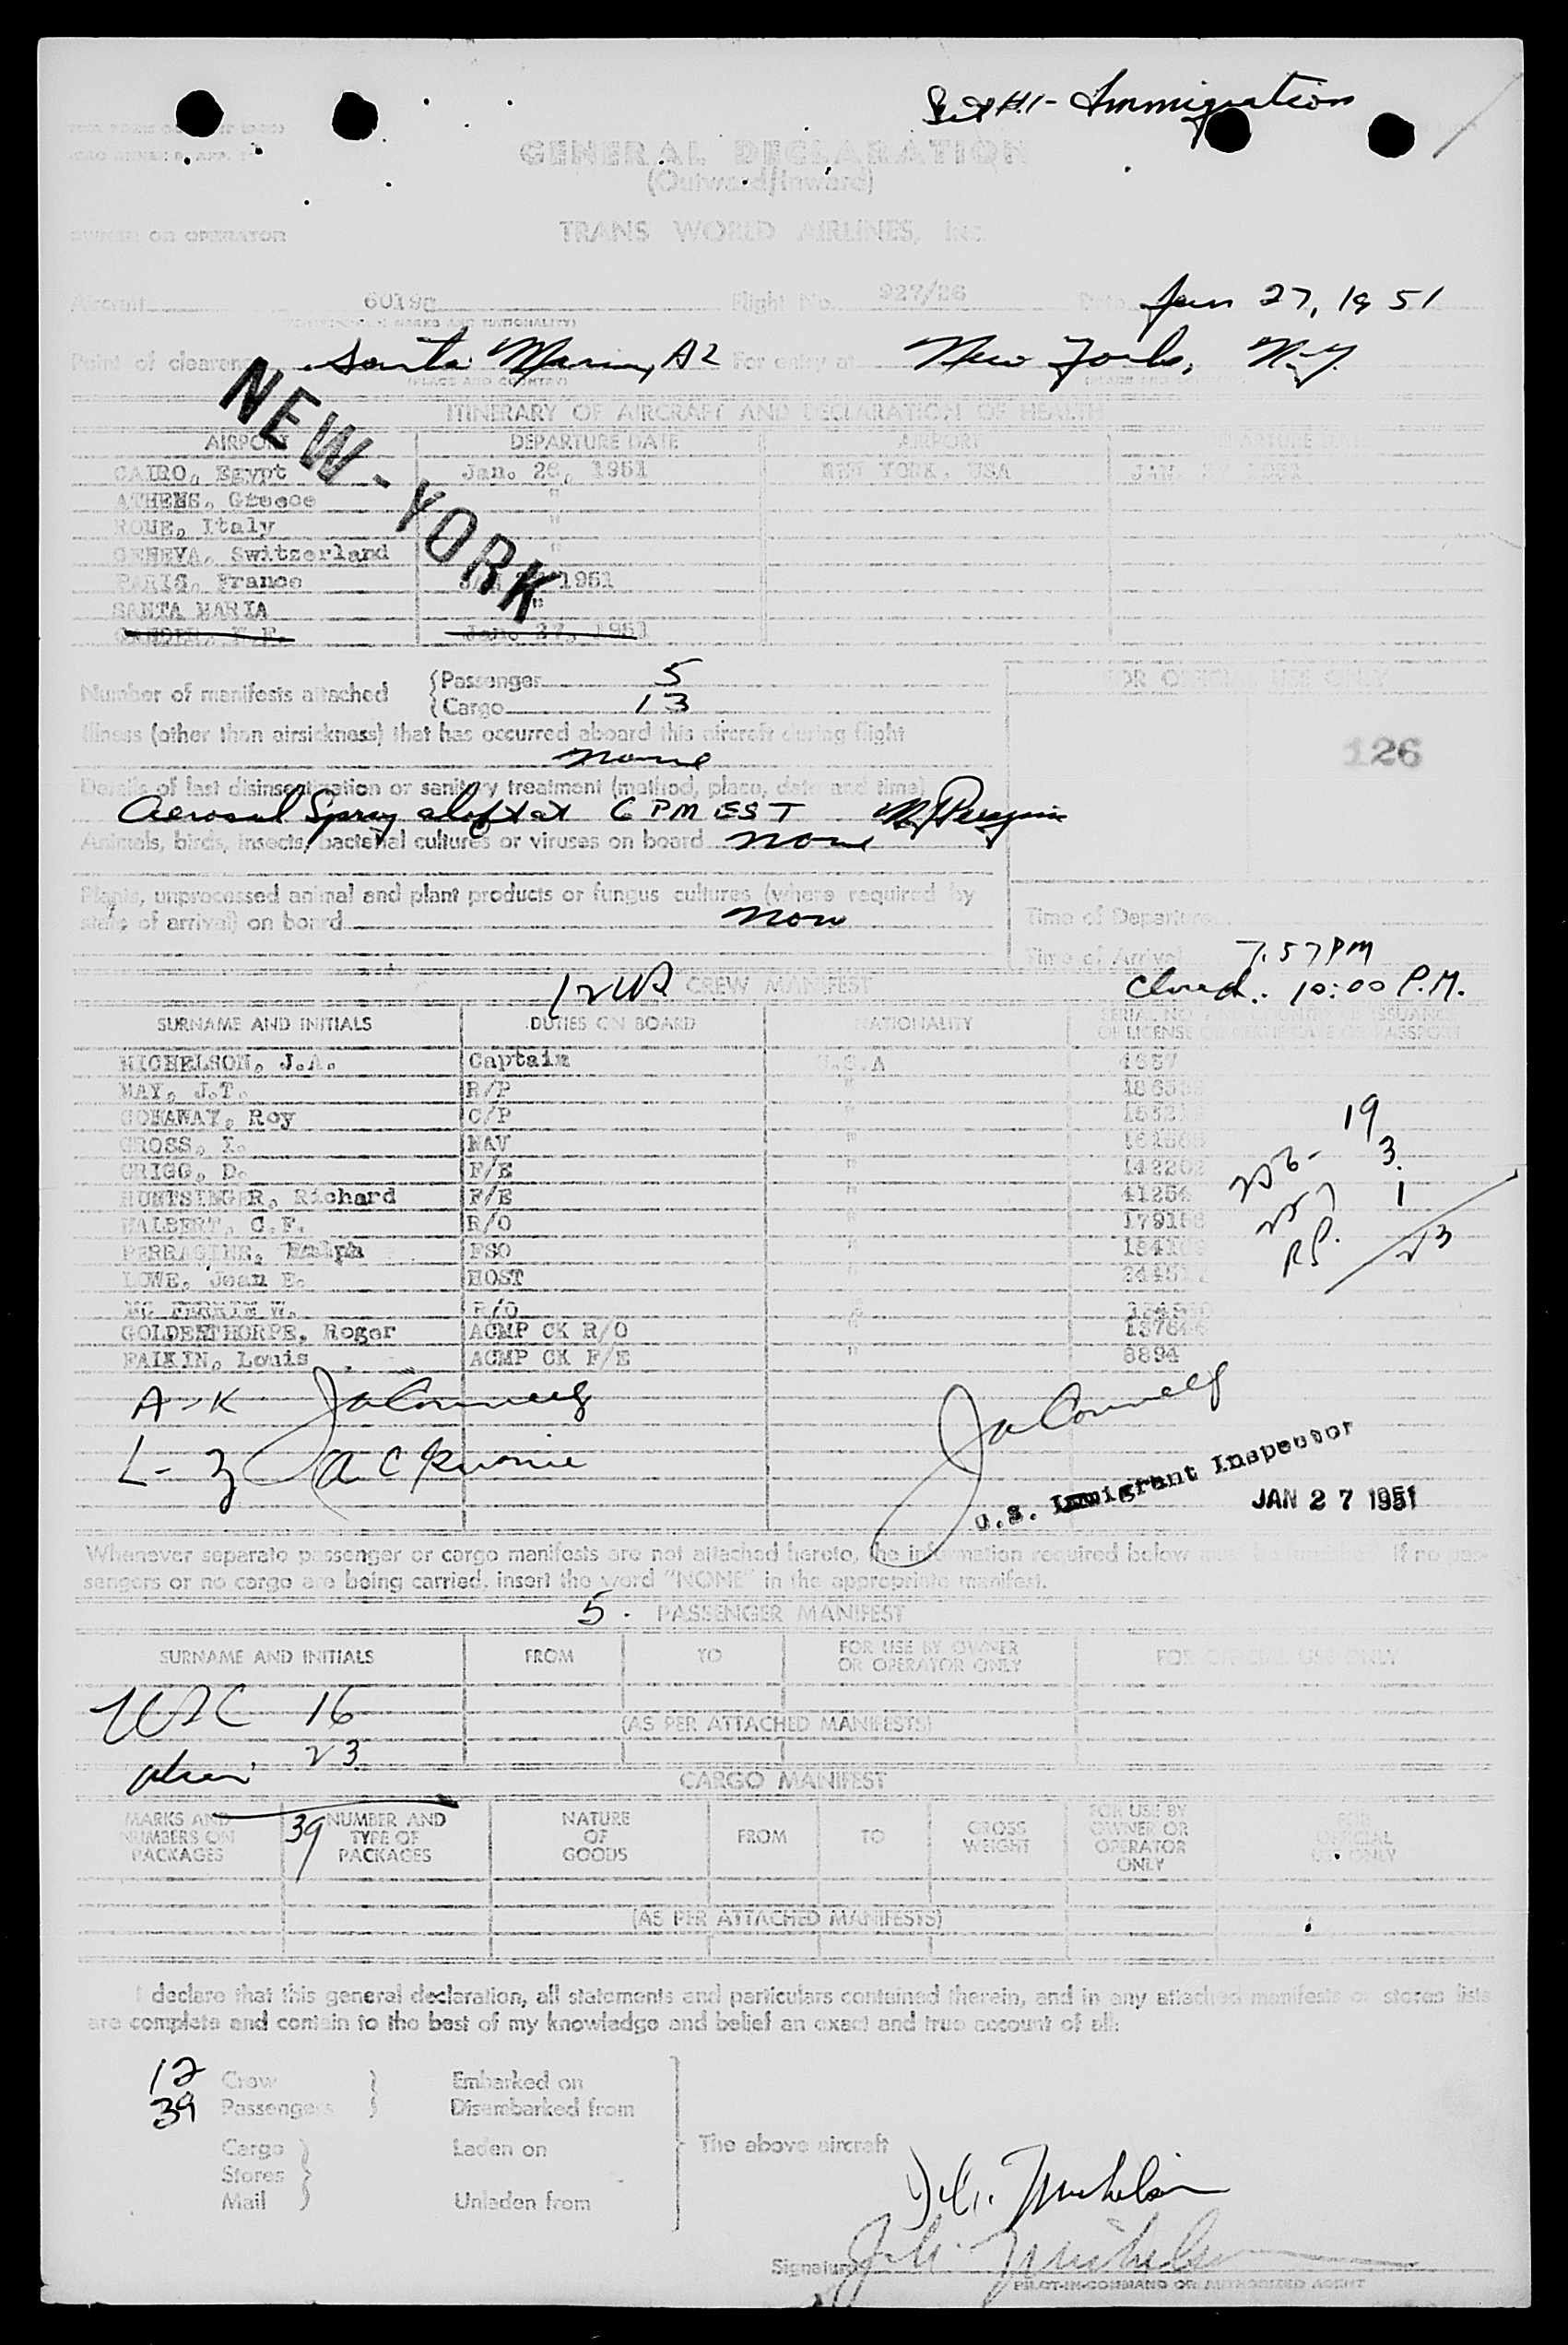 Immigration
GENERAL DECLARATION
(Outward/Inward)
OWNER OR OPERATOR TRANS WORLD AIRLINES, Inc.
Aircraft 6019C Flight No. 927/26 Date Jan 27, 1951
Point of clearance Santa Maria, AZ For entry at New York, N.Y.
(PLACE AND COUNTRY)
NEW-YORK
ITINERARY OF AIRCRAFT AND DECLARATION OF HEALTH
AIRPORT DEPARTURE DATE AIRPORT DEPARTURE DATE
CAIRO, Egypt Jan. 26, 1951 NEW YORK, USA JAN. 27 1951
ATHENS, Greece "
ROME, Italy "
GENEVA, Switzerland "
PARIS, France 1951
SANTA MARIA "
Jan. 27, 1951
Number of manifests attached
Passenger 5
Cargo 13
FOR OFFICIAL USE ONLY
126
Illness (other than airsickness) that has occurred aboard this aircraft during flight
none
Details of last disinsectization or sanitary treatment (method, place, date and time)
Aerosol Spray aloft at 6 PM EST
Animals, birds, insects, bacterial cultures or viruses on board none
Plants, unprocessed animal and plant products or fungus cultures (where required by
state of arrival) on board none
Time of Departure
Time of Arrival 7.57 PM
Closed.. 10:00 P.M.
12 CREW MANIFEST
SURNAME AND INITIALS DUTIES ON BOARD NATIONALITY SERIAL NO. AND COUNTRY OF ISSUANCE
OF LICENSE CERTIFICATE OR PASSPORT
MICHELSON, J.A. Captain U.S.A 1557
MAY, J.T. R/P "
CONAWAY, Roy C/P "
GROSS, I. NAV "
GRIGG, D. F/E "
HUNTSINGER, Richard F/E " 41254
HALBERT, C.F. R/O "
PERRAGINE, Ralph FSO "
LOWE, Jean E. HOST "
W. R/O "
GOLDENTHORPE, Roger ACMP CK R/O "
FAIKIN, Louis ACMP CK F/E " 8894
19
3
1
23
A-K
L-Z
U.S. Immigrant Inspector
JAN 27 1951
Whenever separate passenger or cargo manifests are not attached hereto, the information required below must be furnished. If no pas-
sengers or no cargo are being carried, insert the word "NONE" in the appropriate manifest.
5. PASSENGER MANIFEST
SURNAME AND INITIALS FROM TO FOR USE BY OWNER OR OPERATOR ONLY FOR OFFICIAL USE ONLY
USC 16
(AS PER ATTACHED MANIFESTS)
alien 23
39
CARGO MANIFEST
MARKS AND NUMBERS ON PACKAGES NUMBER AND TYPE OF PACKAGES NATURE OF GOODS FROM TO GROSS WEIGHT FOR USE BY OWNER OR OPERATOR ONLY FOR OFFICIAL USE ONLY
(AS PER ATTACHED MANIFESTS)
I declare that this general declaration, all statements and particulars contained therein, and in any attached manifests or stores lists
are complete and contain to the best of my knowledge and belief an exact and true account of all:
12 Crew Embarked on
39 Passengers Disembarked from
The above aircraft
Cargo Laden on
Stores
Mail Unladen from
Signature
PILOT-IN-COMMAND OR AUTHORIZED AGENT